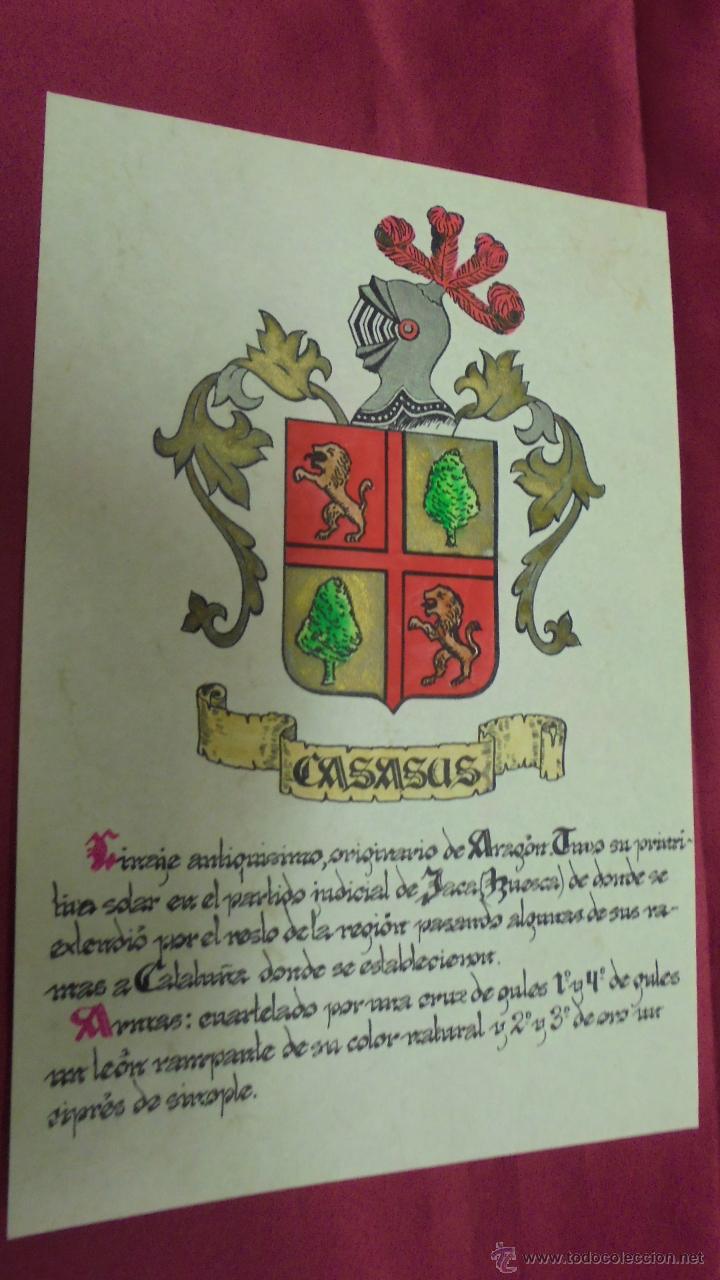 CASASUS
Linaje antiquisimo, originario de Aragón. Tuvo su primi-
tivo solar en el partido judicial de Jaca (Huesca) de donde se
extendió por el resto de la región pasando algunas de sus ra-
mas a Cataluña donde se establecieron.
Armas: cuartelado por una cruz de gules 1º y 4º de gules
un león rampante de su color natural y 2º y 3º de oro un
siprés de sinople.
www.todocoleccion.net